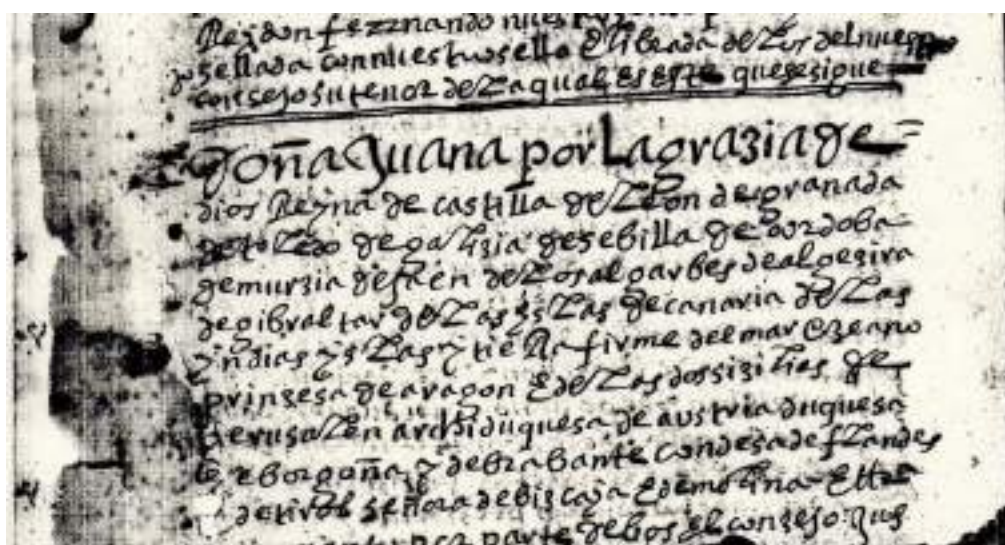 Rey don fernando nuestro
do sellada con nuestro sello E librada de los del nuestro
consejo su tenor de la qual es este que se sigue
doña Juana por La grazia de
dios Reyna de castilla de Leon de granada
de toledo de galizia de sebilla de cordoba
de murzia de jaen de los algarbes de algezira
de gibraltar de las yslas de canaria de las
yndias yslas y tieRa firme del mar Ozeano
prinzesa de aragon E de las dos sizilias de
Jerusalen archiduquesa de austria duquesa
de borgoña y de brabante condesa de flandes
de tirol señora de bizcaja E de molina Etta
parte de bos el conzejo jus